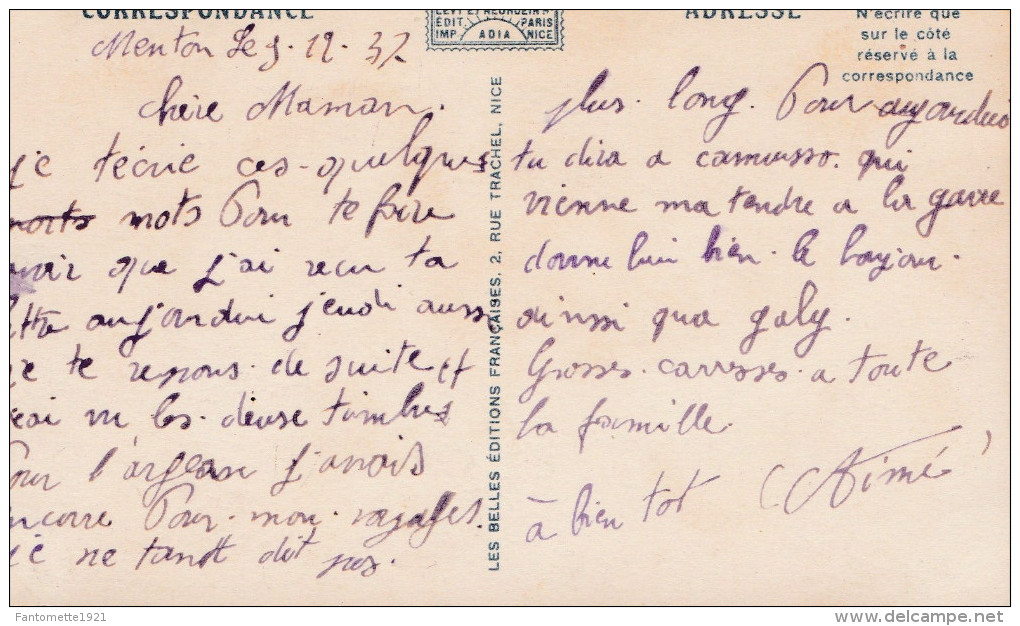 CORRESPONDANCE
LEVY ET NEURDEIN Rs
ÉDIT. PARIS
IMP. ADIA NICE
ADRESSE
N'écrire que
sur le côté
réservé à la
correspondance
Menton Le 9. 12. 37
chère Maman.
je técrie ces quelques
morts mots Pour te faire
savoir que j'ai recu ta
lettre aujourdui jeudi aussi
je te repons de suite et
jai vu les deuse timbres
Pour l'argean j'avais
encorre Pour mon vayages.
je ne tandit pas.
LES BELLES ÉDITIONS FRANÇAISES, 2, RUE TRACHEL, NICE
plus long. Pour aujourdui
tu dira a camusso. qui
vienne ma tendre a la garre
donne lui bien le bonjour.
ainssi qua galy.
Grosses carresses a toute
la famille.
à bien tot (Aimé)
Fantomette1921
www.delcampe.net